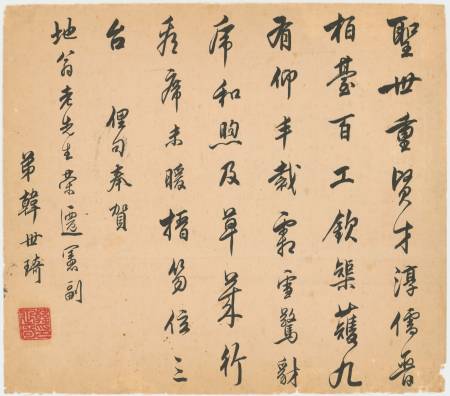 聖世重賢才淳儒晋
柏臺百工欽榘矱九
有仰丰裁霜雪驚豺
虎和煦及草萊行
看席未暖搢笏位三
台 俚句奉賀
地翁老先生榮遷憲副
弟韓世琦